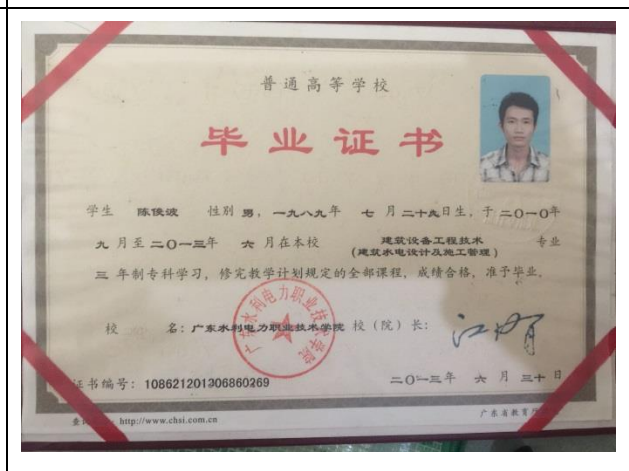 普通高等学校
毕业证书
学生 陈俊波 性别 男，一九八九年 七 月二十九日生，于二〇一〇年
九 月至二〇一三年 六 月在本校 建筑设备工程技术 专业
(建筑水电设计及施工管理)
三 年制专科学习，修完教学计划规定的全部课程，成绩合格，准予毕业。
校 名：广东水利电力职业技术学院 校（院）长：
广东水利电力职业技术学院
证书编号：108621201306860269 二〇一三年 六 月 三十 日
http://www.chsi.com.cn 广东省教育